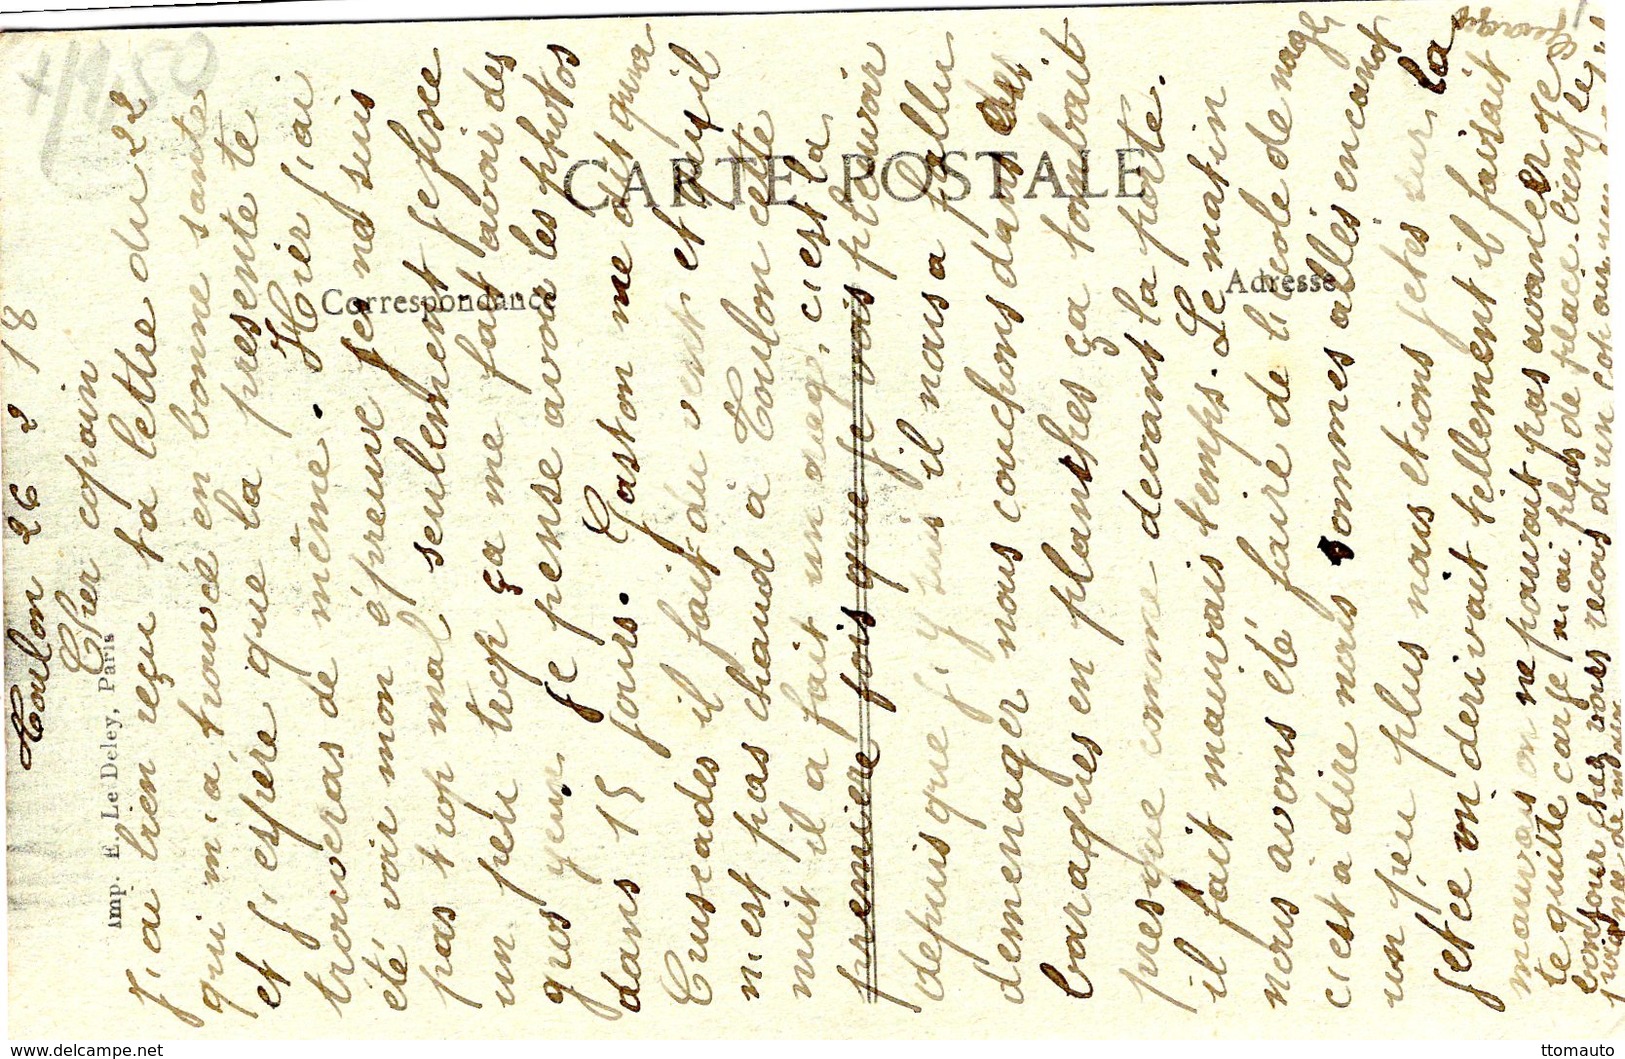 CARTE POSTALE
Correspondance
Adresse
Imp. E. Le Deley, Paris
Toulon 26 2 18
Cher copain
J'ai bien reçu ta lettre du 22
qui m'a trouvé en bonne sante
et j'espère que la presente te
trouveras de même. Hier j'ai
été voir mon épreuve je ne suis
pas trop mal seulement je fisce
un peu trop ça me fait avoir des
gros yeux je pense avoir les photos
dans 15 jours. Gaston me dis qua
Cuscades il fait du vent et qu'il
n'est pas chaud à Toulon cette
nuit il a fait un deg. c'est la
première fois que je vois pleuvoir
depuis que j'y suis il nous a fallu
demenager nous couchons dans des
baraques en planches ça tombait
presque comme devant la porte.
il fait mauvais temps. Le matin
nous avons été faire de l'école de nage
c'est à dire nous sommes allés en canot
un peu plus nous etions jetés sur la
jetee on derivait tellement il faisait
mauvais on ne pouvait pas avancer je
te quitte car je n'ai plus de place. bien le
bonjour chez vous recois d'un copain une
poignée de main
www.delcampe.net
ttomauto